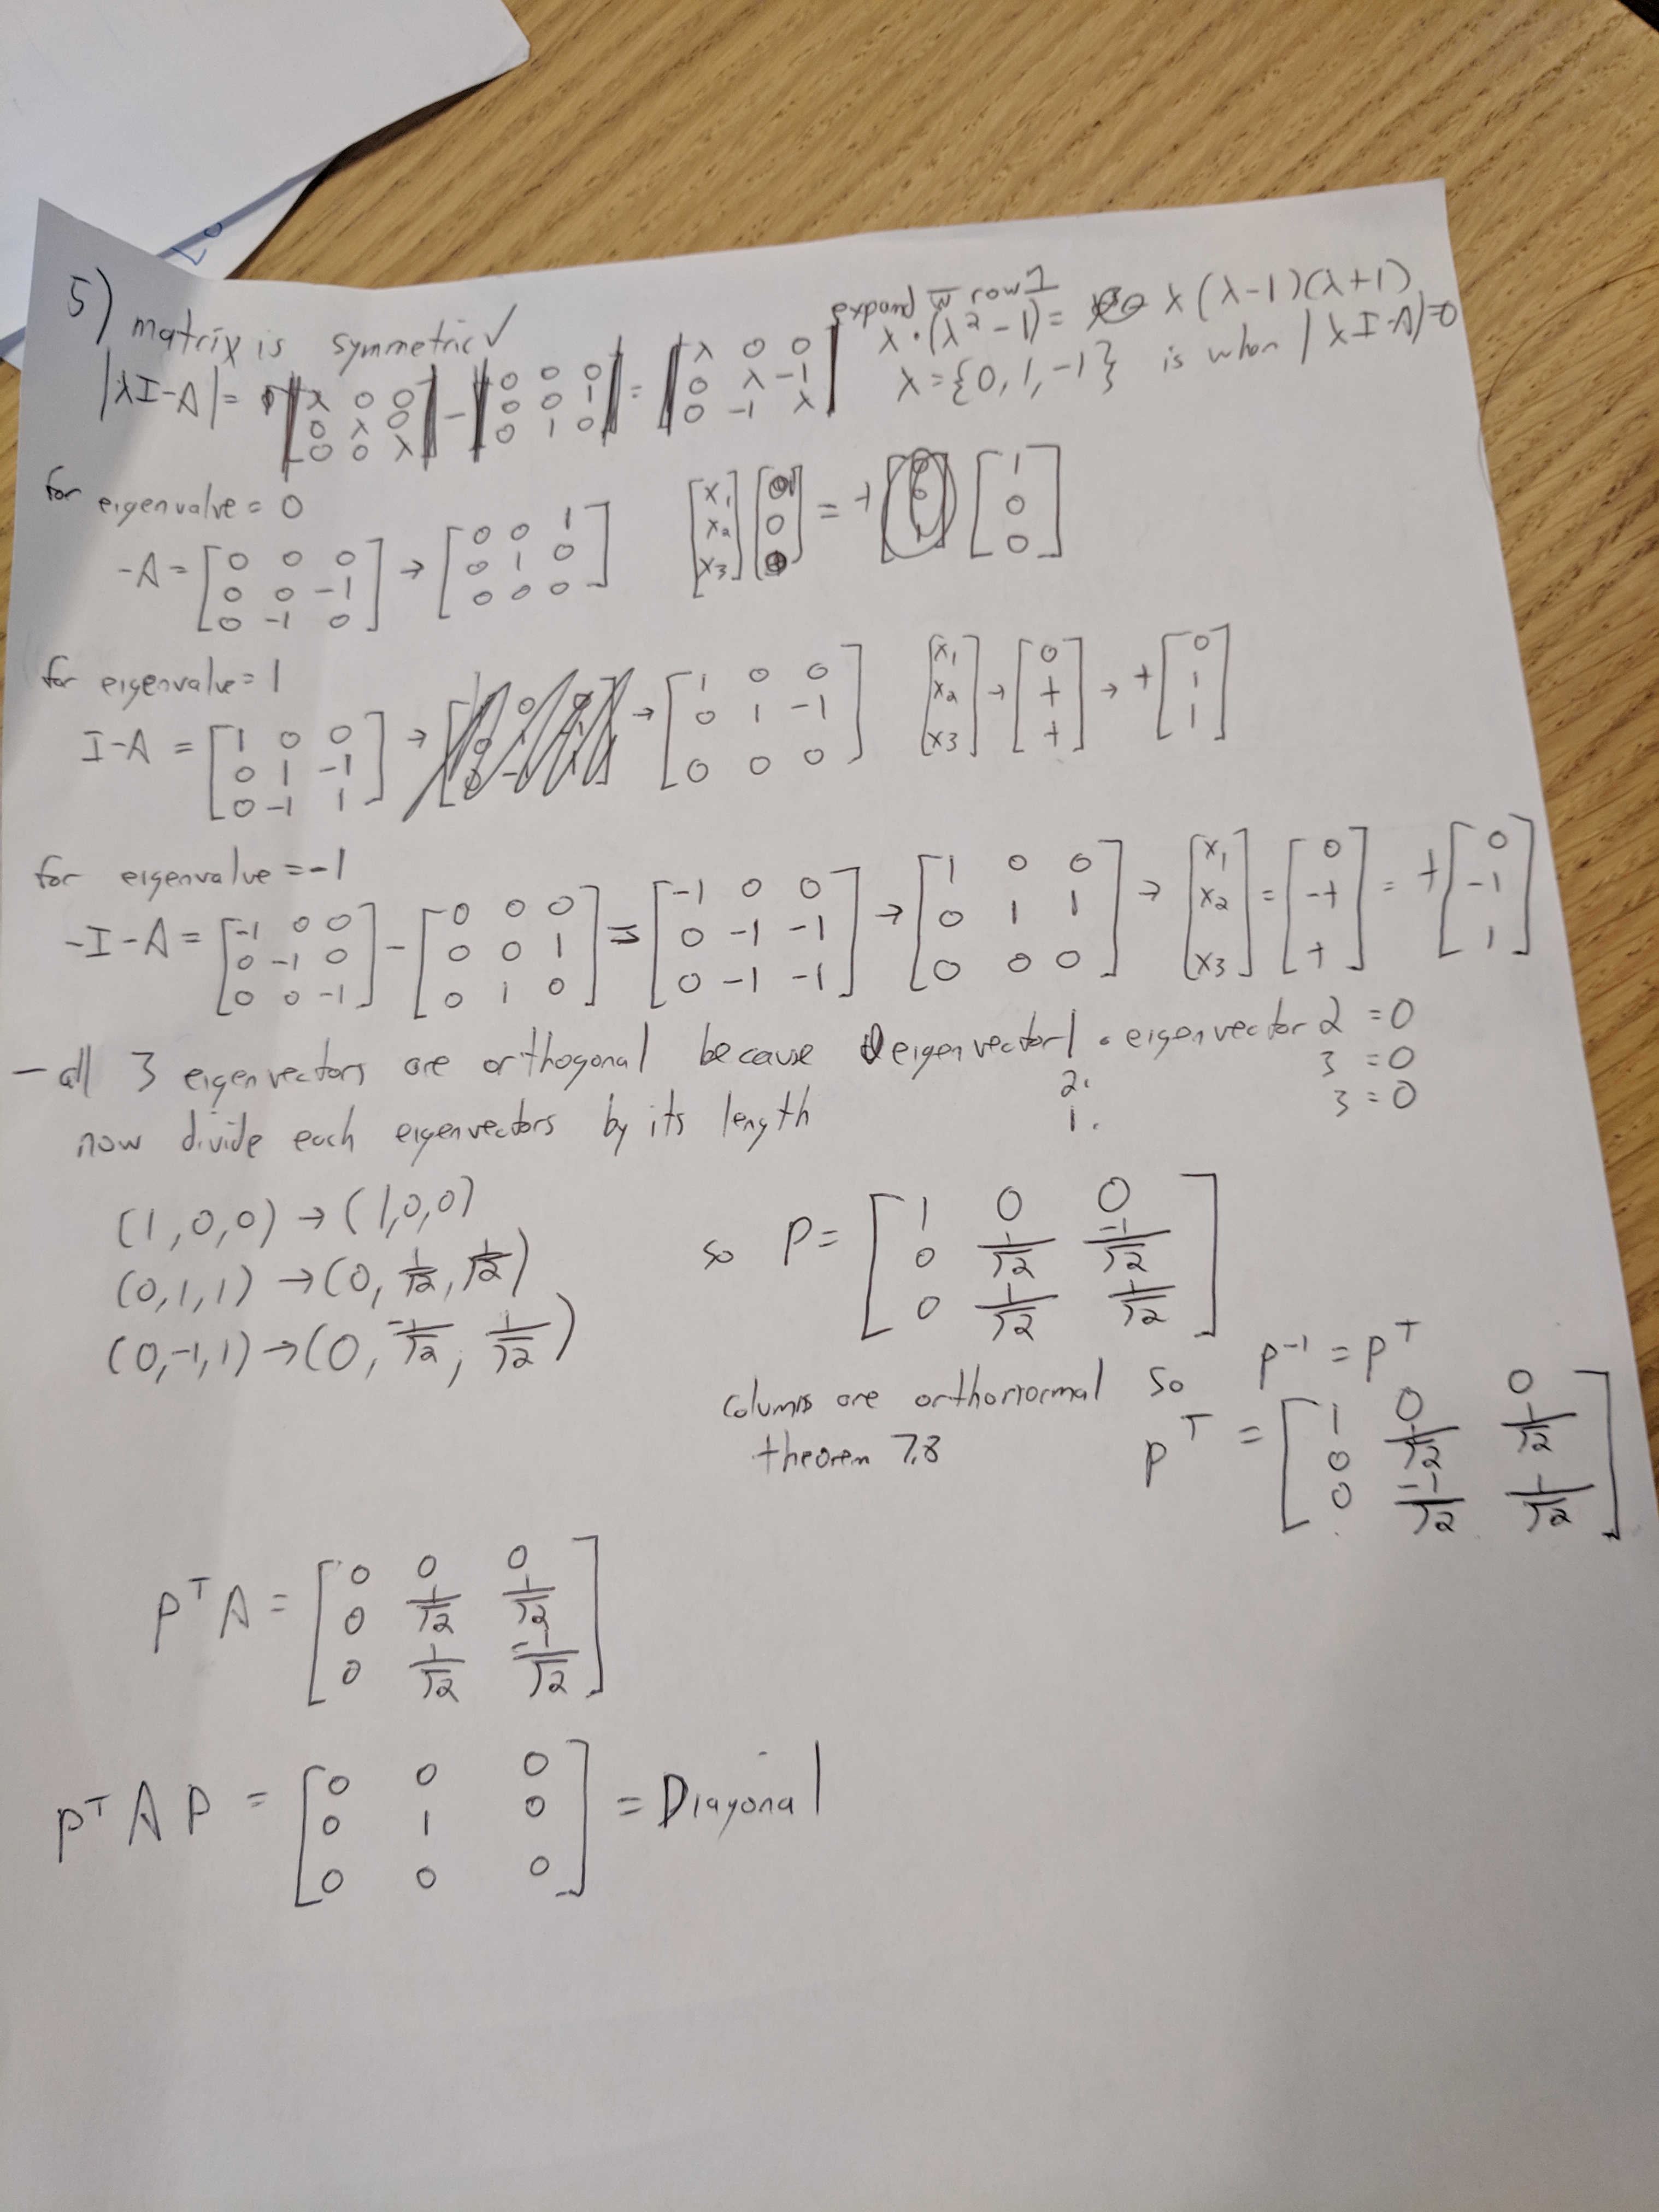 5) matrix is symmetric ✓
expand w̅ row 1
|λI-A| = [λ 0 0; 0 λ 0; 0 0 λ] - [0 0 0; 0 0 1; 0 1 0] = |λ 0 0; 0 λ -1; 0 -1 λ| λ·(λ²-1) = λ(λ-1)(λ+1)
λ={0,1,-1} is when |λI-A|=0
for eigenvalve = 0
-A = [0 0 0; 0 0 -1; 0 -1 0] → [0 0 1; 0 1 0; 0 0 0] [x₁; x₂; x₃] = t [1; 0; 0]
for eigenvalve = 1
I-A = [1 0 0; 0 1 -1; 0 -1 1] → [1 0 0; 0 1 -1; 0 0 0] [x₁; x₂; x₃] → [0; t; t] → t [0; 1; 1]
for eigenvalve = -1
-I-A = [-1 0 0; 0 -1 0; 0 0 -1] - [0 0 0; 0 0 1; 0 1 0] = [-1 0 0; 0 -1 -1; 0 -1 -1] → [1 0 0; 0 1 1; 0 0 0] → [x₁; x₂; x₃] = [0; -t; t] = t [0; -1; 1]
- all 3 eigenvectors are orthogonal because eigenvector 1 · eigenvector 2 = 0
2· 3 = 0
1· 3 = 0
now divide each eigenvectors by its length
(1,0,0) → (1,0,0)
(0,1,1) → (0, 1/√2, 1/√2)
(0,-1,1) → (0, -1/√2, 1/√2)
so P = [1 0 0; 0 1/√2 -1/√2; 0 1/√2 1/√2]
columns are orthornormal so P⁻¹ = Pᵀ
theorem 7.8
Pᵀ = [1 0 0; 0 1/√2 1/√2; 0 -1/√2 1/√2]
PᵀA = [0 0 0; 0 1/√2 1/√2; 0 1/√2 -1/√2]
PᵀAP = [0 0 0; 0 1 0; 0 0 0] = Diagonal